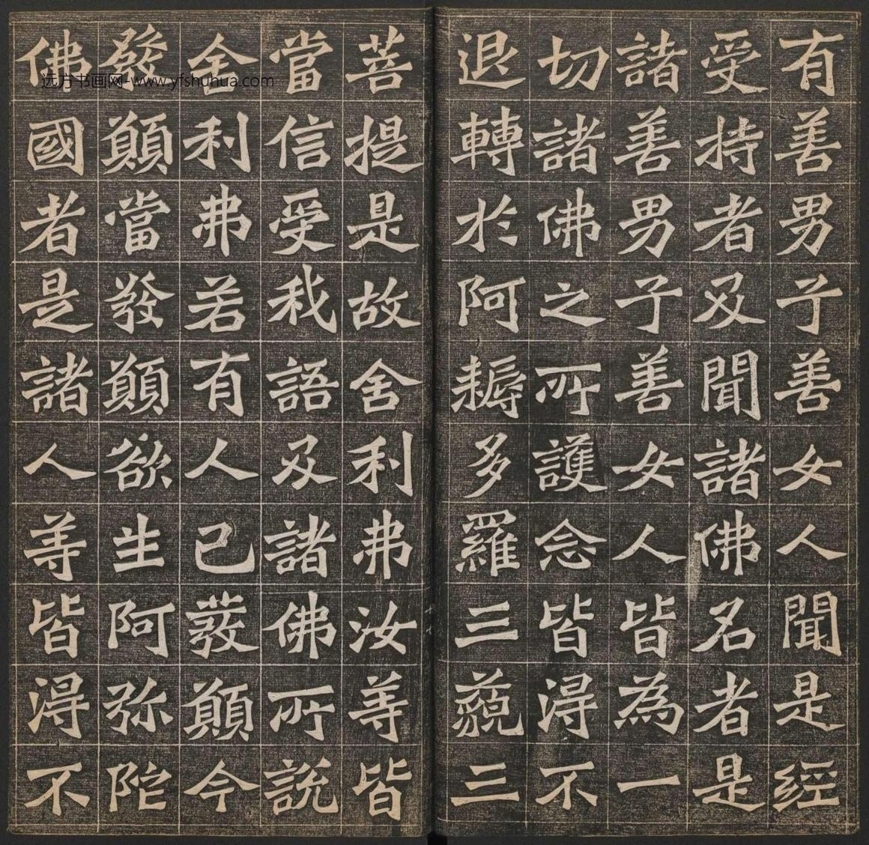 有善男子善女人聞是經
受持者及聞諸佛名者是
諸善男子善女人皆為一
切諸佛之所護念皆淂不
退轉於阿耨多羅三藐三
菩提是故舍利弗汝等皆
當信受我語及諸佛所說
舍利弗若有人已發願今
發願當發願欲生阿弥陀
佛國者是諸人等皆淂不
远方书画网-www.yfshuhua.com